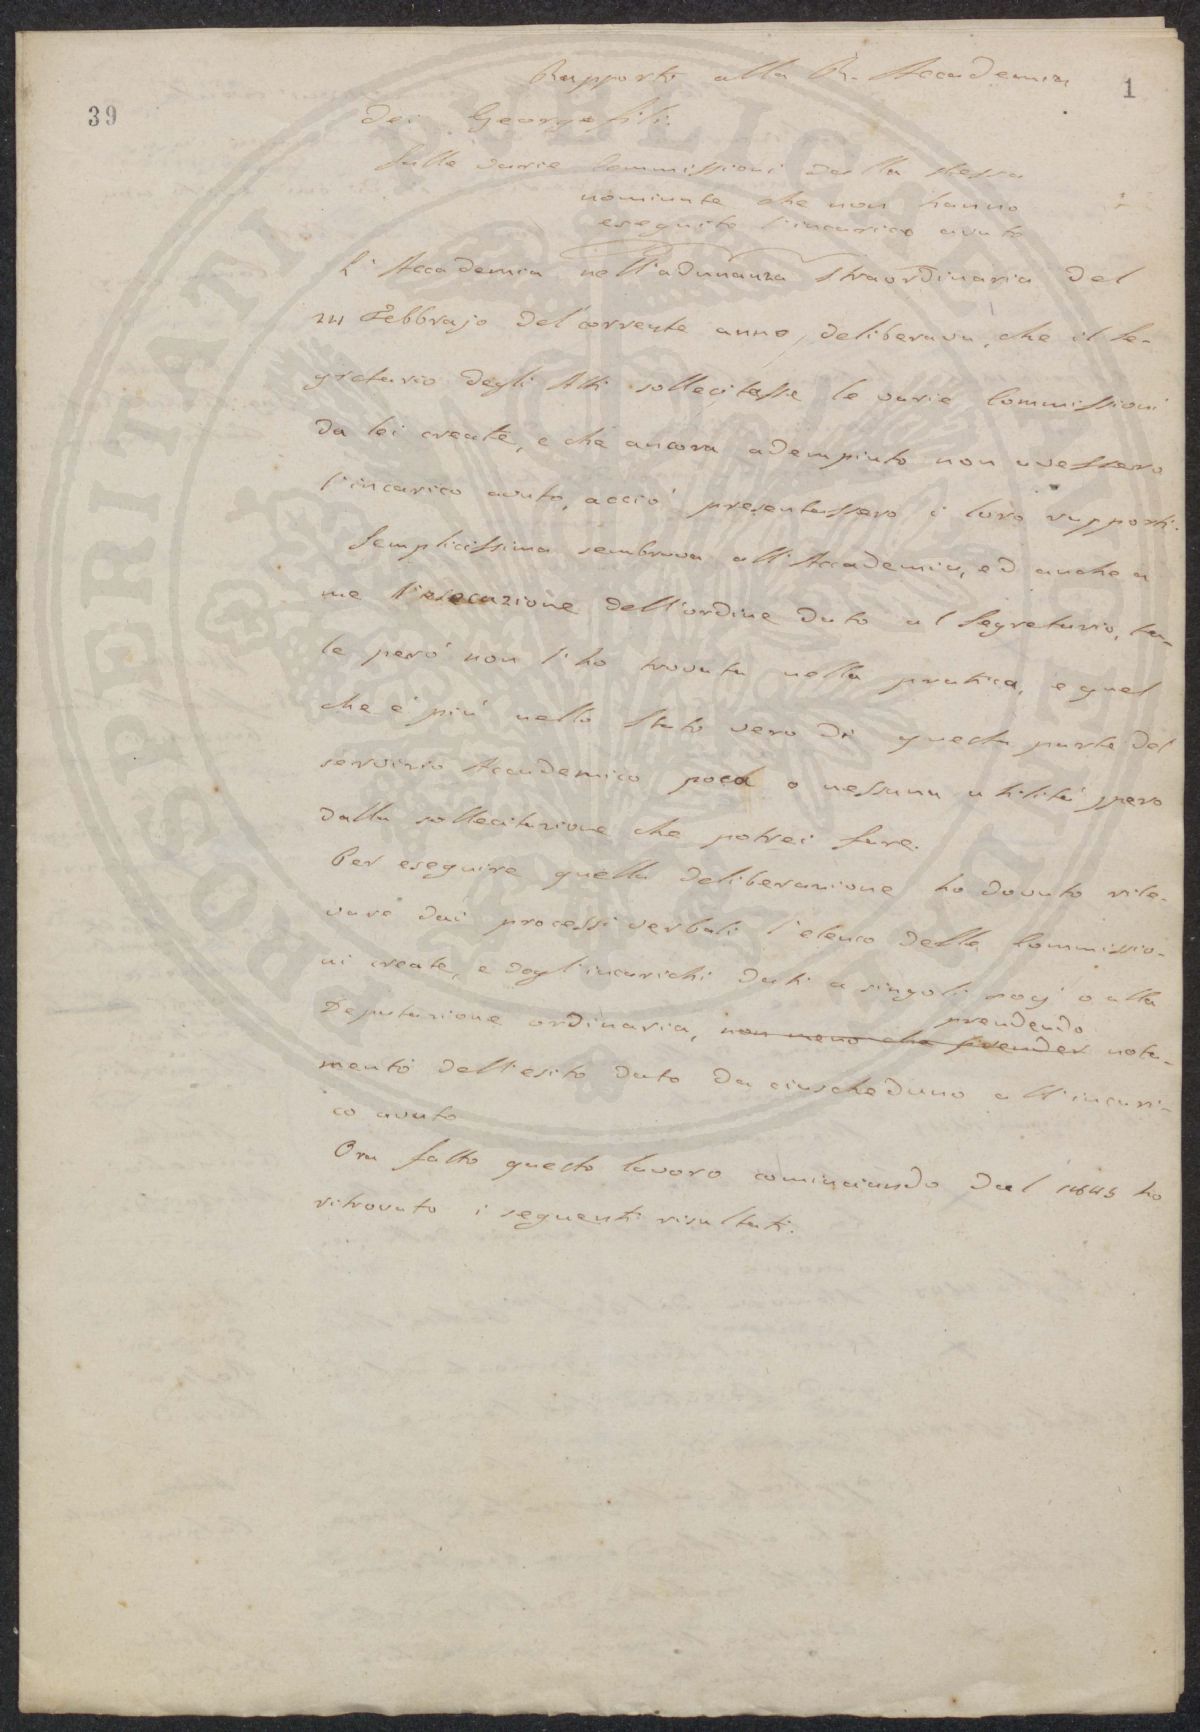 Rapporto alla R. Accademia
1
39
dei Georgofili.
Sulle varie Commissioni dalla stessa
nominate che non hanno
eseguito l'incarico avuto
L'Accademia nell'adunanza straordinaria del
24 Febbrajo del corrente anno, deliberava, che il Se-
gretario degli Atti sollecitasse le varie Commissioni
da lei create, e che ancora adempiuto non avessero
l'incarico avuto, acciò presentassero i loro rapporti.
Semplicissima sembrava all'Accademia, ed anche a
me l'esecuzione dell'ordine dato al Segretario, ta-
le però non l'ho trovata nella pratica, e quel
che è più nello stato vero di questa parte del
servizio Accademico poca o nessuna utilità spero
dalla sollecitazione che potrei fare.
Per eseguire quella deliberazione ho dovuto rile-
vare dai processi verbali l'elenco delle Commissio-
ni create, e degl'incarichi dati a singoli socj o alla
prendendo
Deputazione ordinaria, non meno che prender nota-
mento dell'esito dato da ciascheduno all'incari-
co avuto
Ora fatto questo lavoro cominciando dal 1845 ho
ritrovato i seguenti risultati.
PROSPERITATI PUBLICAE AUGENDAE